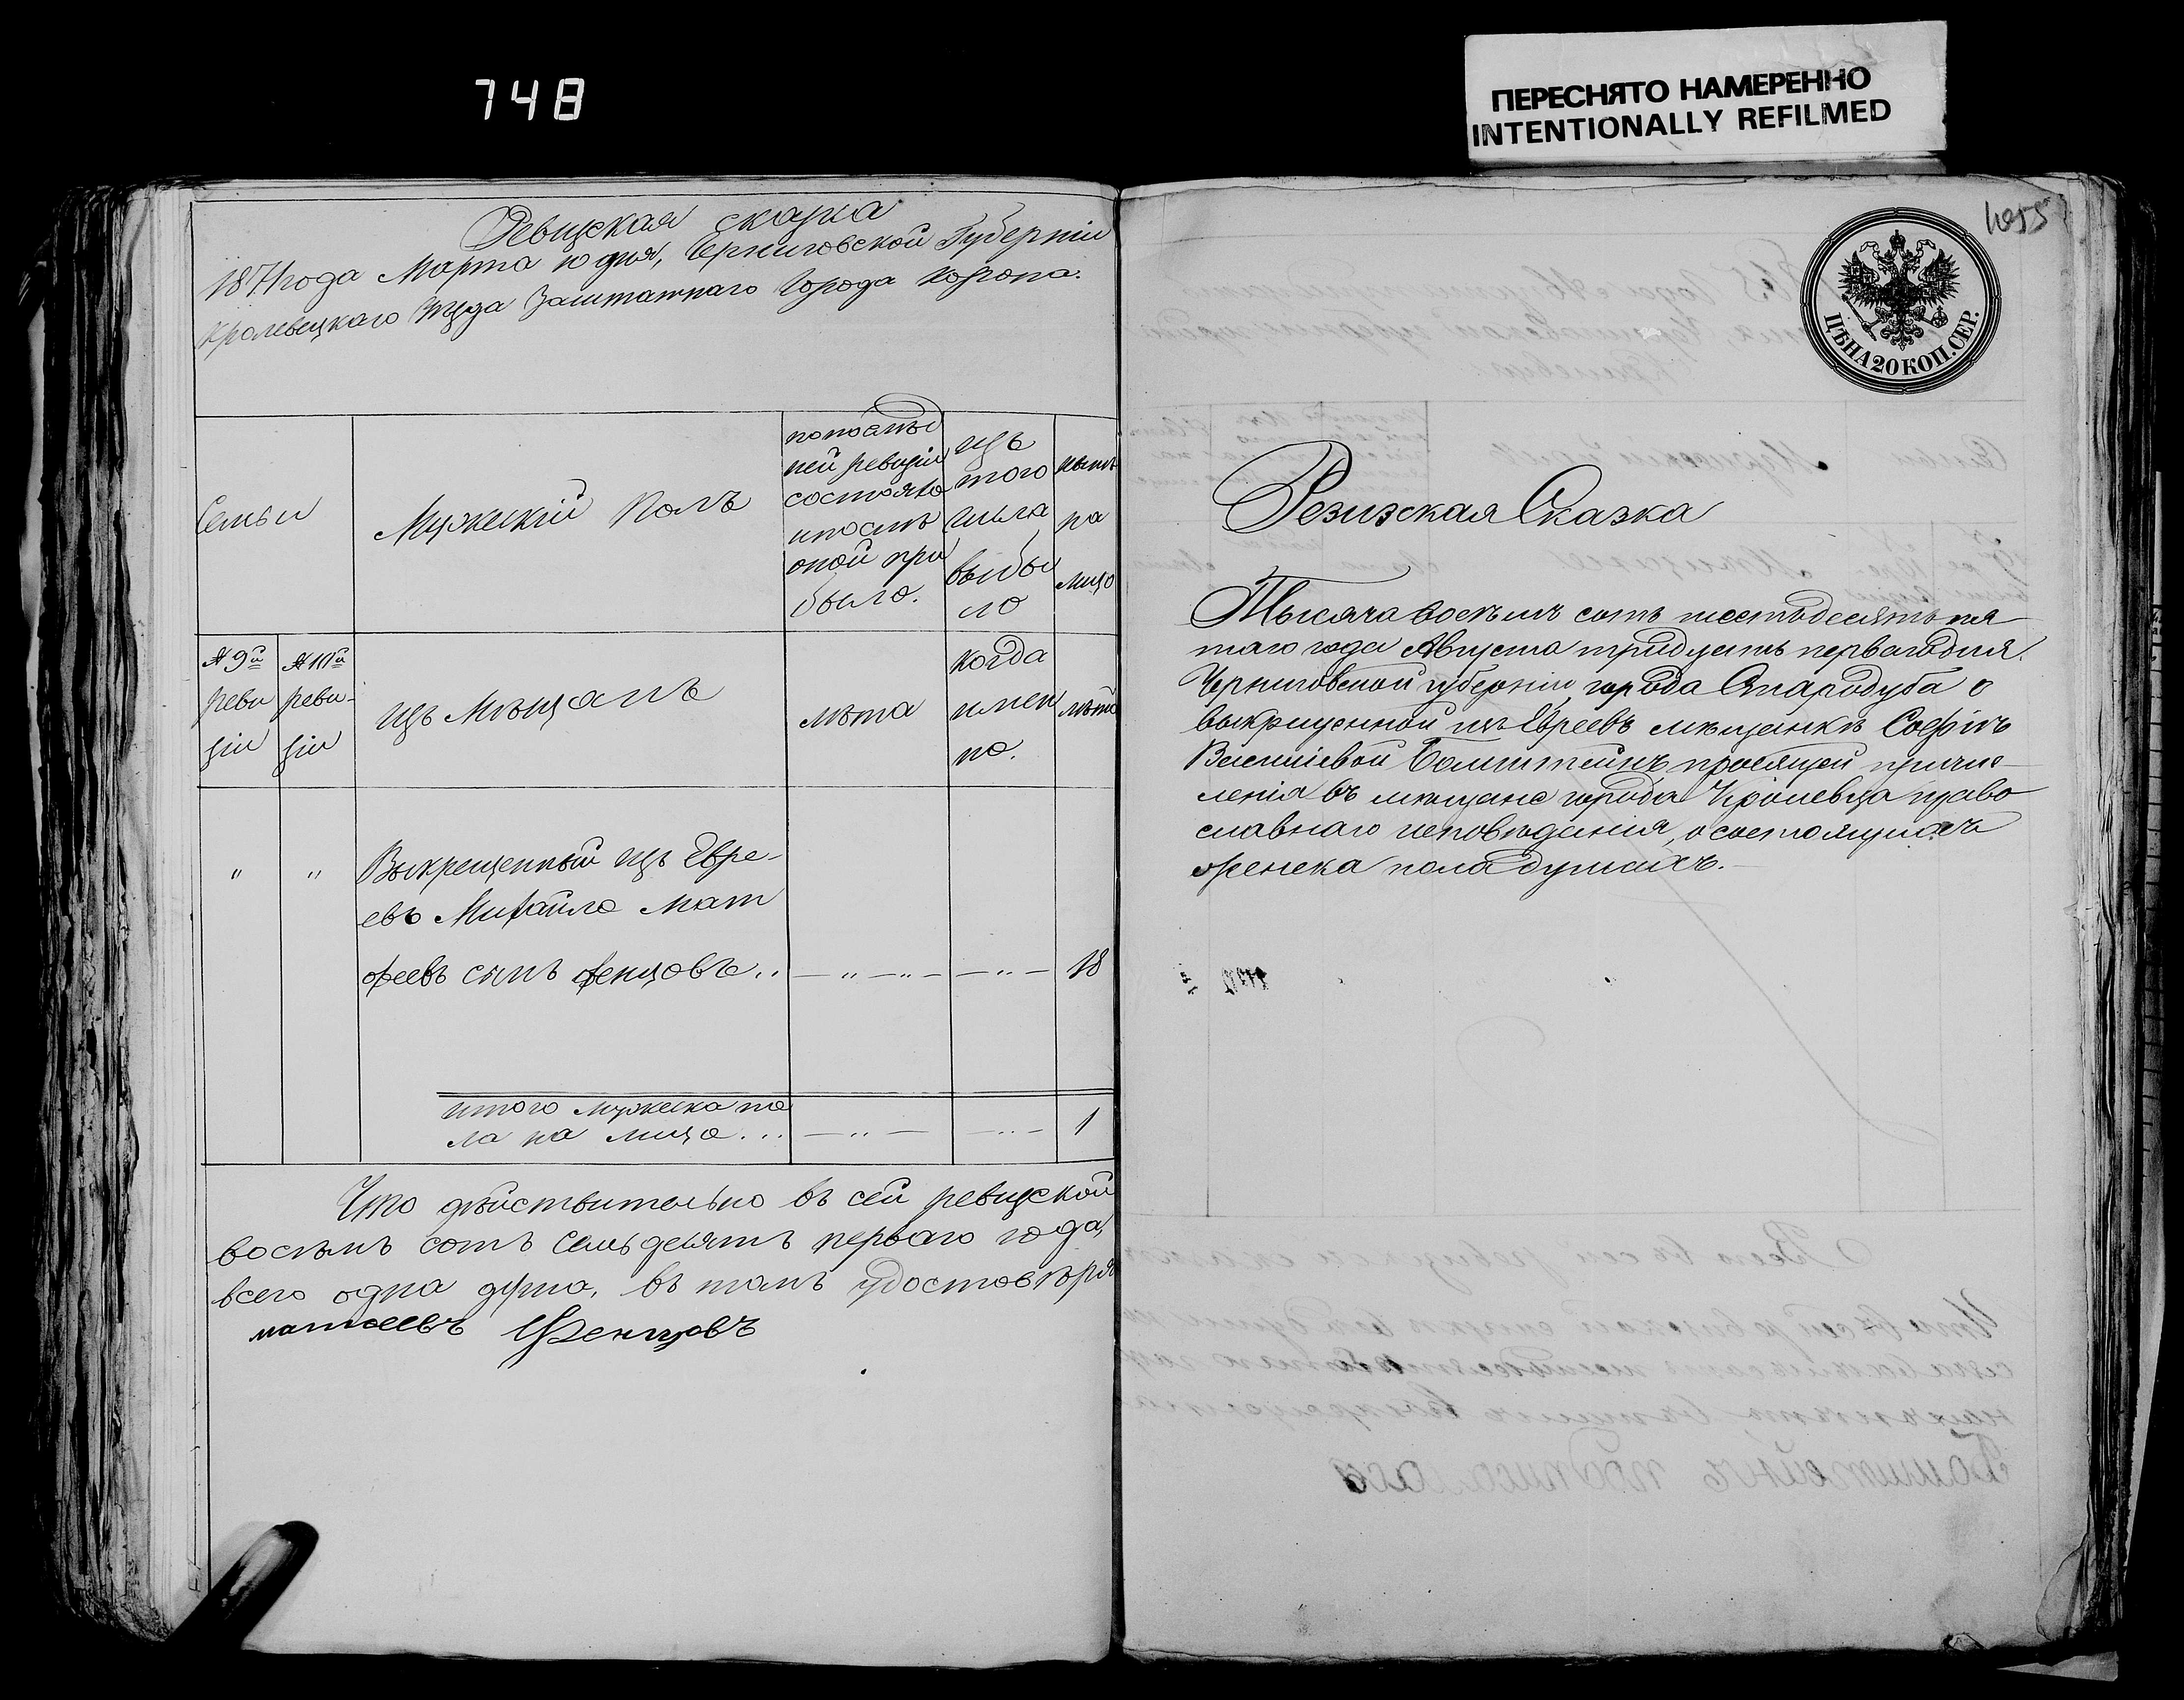 748
ПЕРЕСНЯТО НАМЕРЕННО
INTENTIONALLY REFILMED
Ревизская сказка
1871 года Марта 10 дня, Черниговской Губерніи
Кролевецкаго уѣзда Заштатнаго Города Коропа.
Семьи
Мужескій Полъ
по послѣд
ней ревизіи
состояло
и послѣ
оной при
было.
изъ
того
числа
выбы
ло
нынѣ
на
лицо
№ 9й
реви
зіи
№ 10й
реви-
зіи
изъ Мѣщанъ
лѣта
когда
имен
но.
лѣта
" "
Выкрещенный изъ Евре-
евъ Михайло Мат
фѣевъ сынъ Фенцовъ .. — „ — „ — — „ — 18
итого мужеска по
ла на лицо ... — „ — — „ — 1
Что дѣйствительно въ сей ревизской
восемь сотъ семьдесятъ перваго года,
всего одна душа, въ томъ удостовѣря
матвеевъ Фенцовъ
1255
ЦѢНА 20 КОП. СЕР.
Ревизская Сказка
Тысяча восемь сотъ шестьдесятъ пя
таго года Августа тридцать перваго дня.
Черниговской губерніи, города Стародуба о
выкрещенной изъ Евреевъ мѣщанкѣ Софіи
Васильевой Бомштейнъ, просящей причис
ленія въ мѣщане города Кролевца право
славнаго исповѣданія, о состоящихъ
женска пола душахъ.